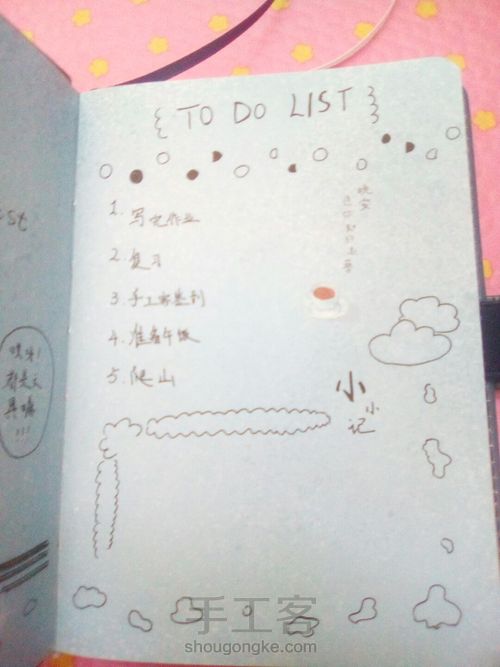 { TO DO LIST }
1. 写完作业
2. 复习
3. 手工客签到
4. 准备午饭
5. 爬山
晚安
小小记
st
哎呀!
!!!
手工客
shougongke.com